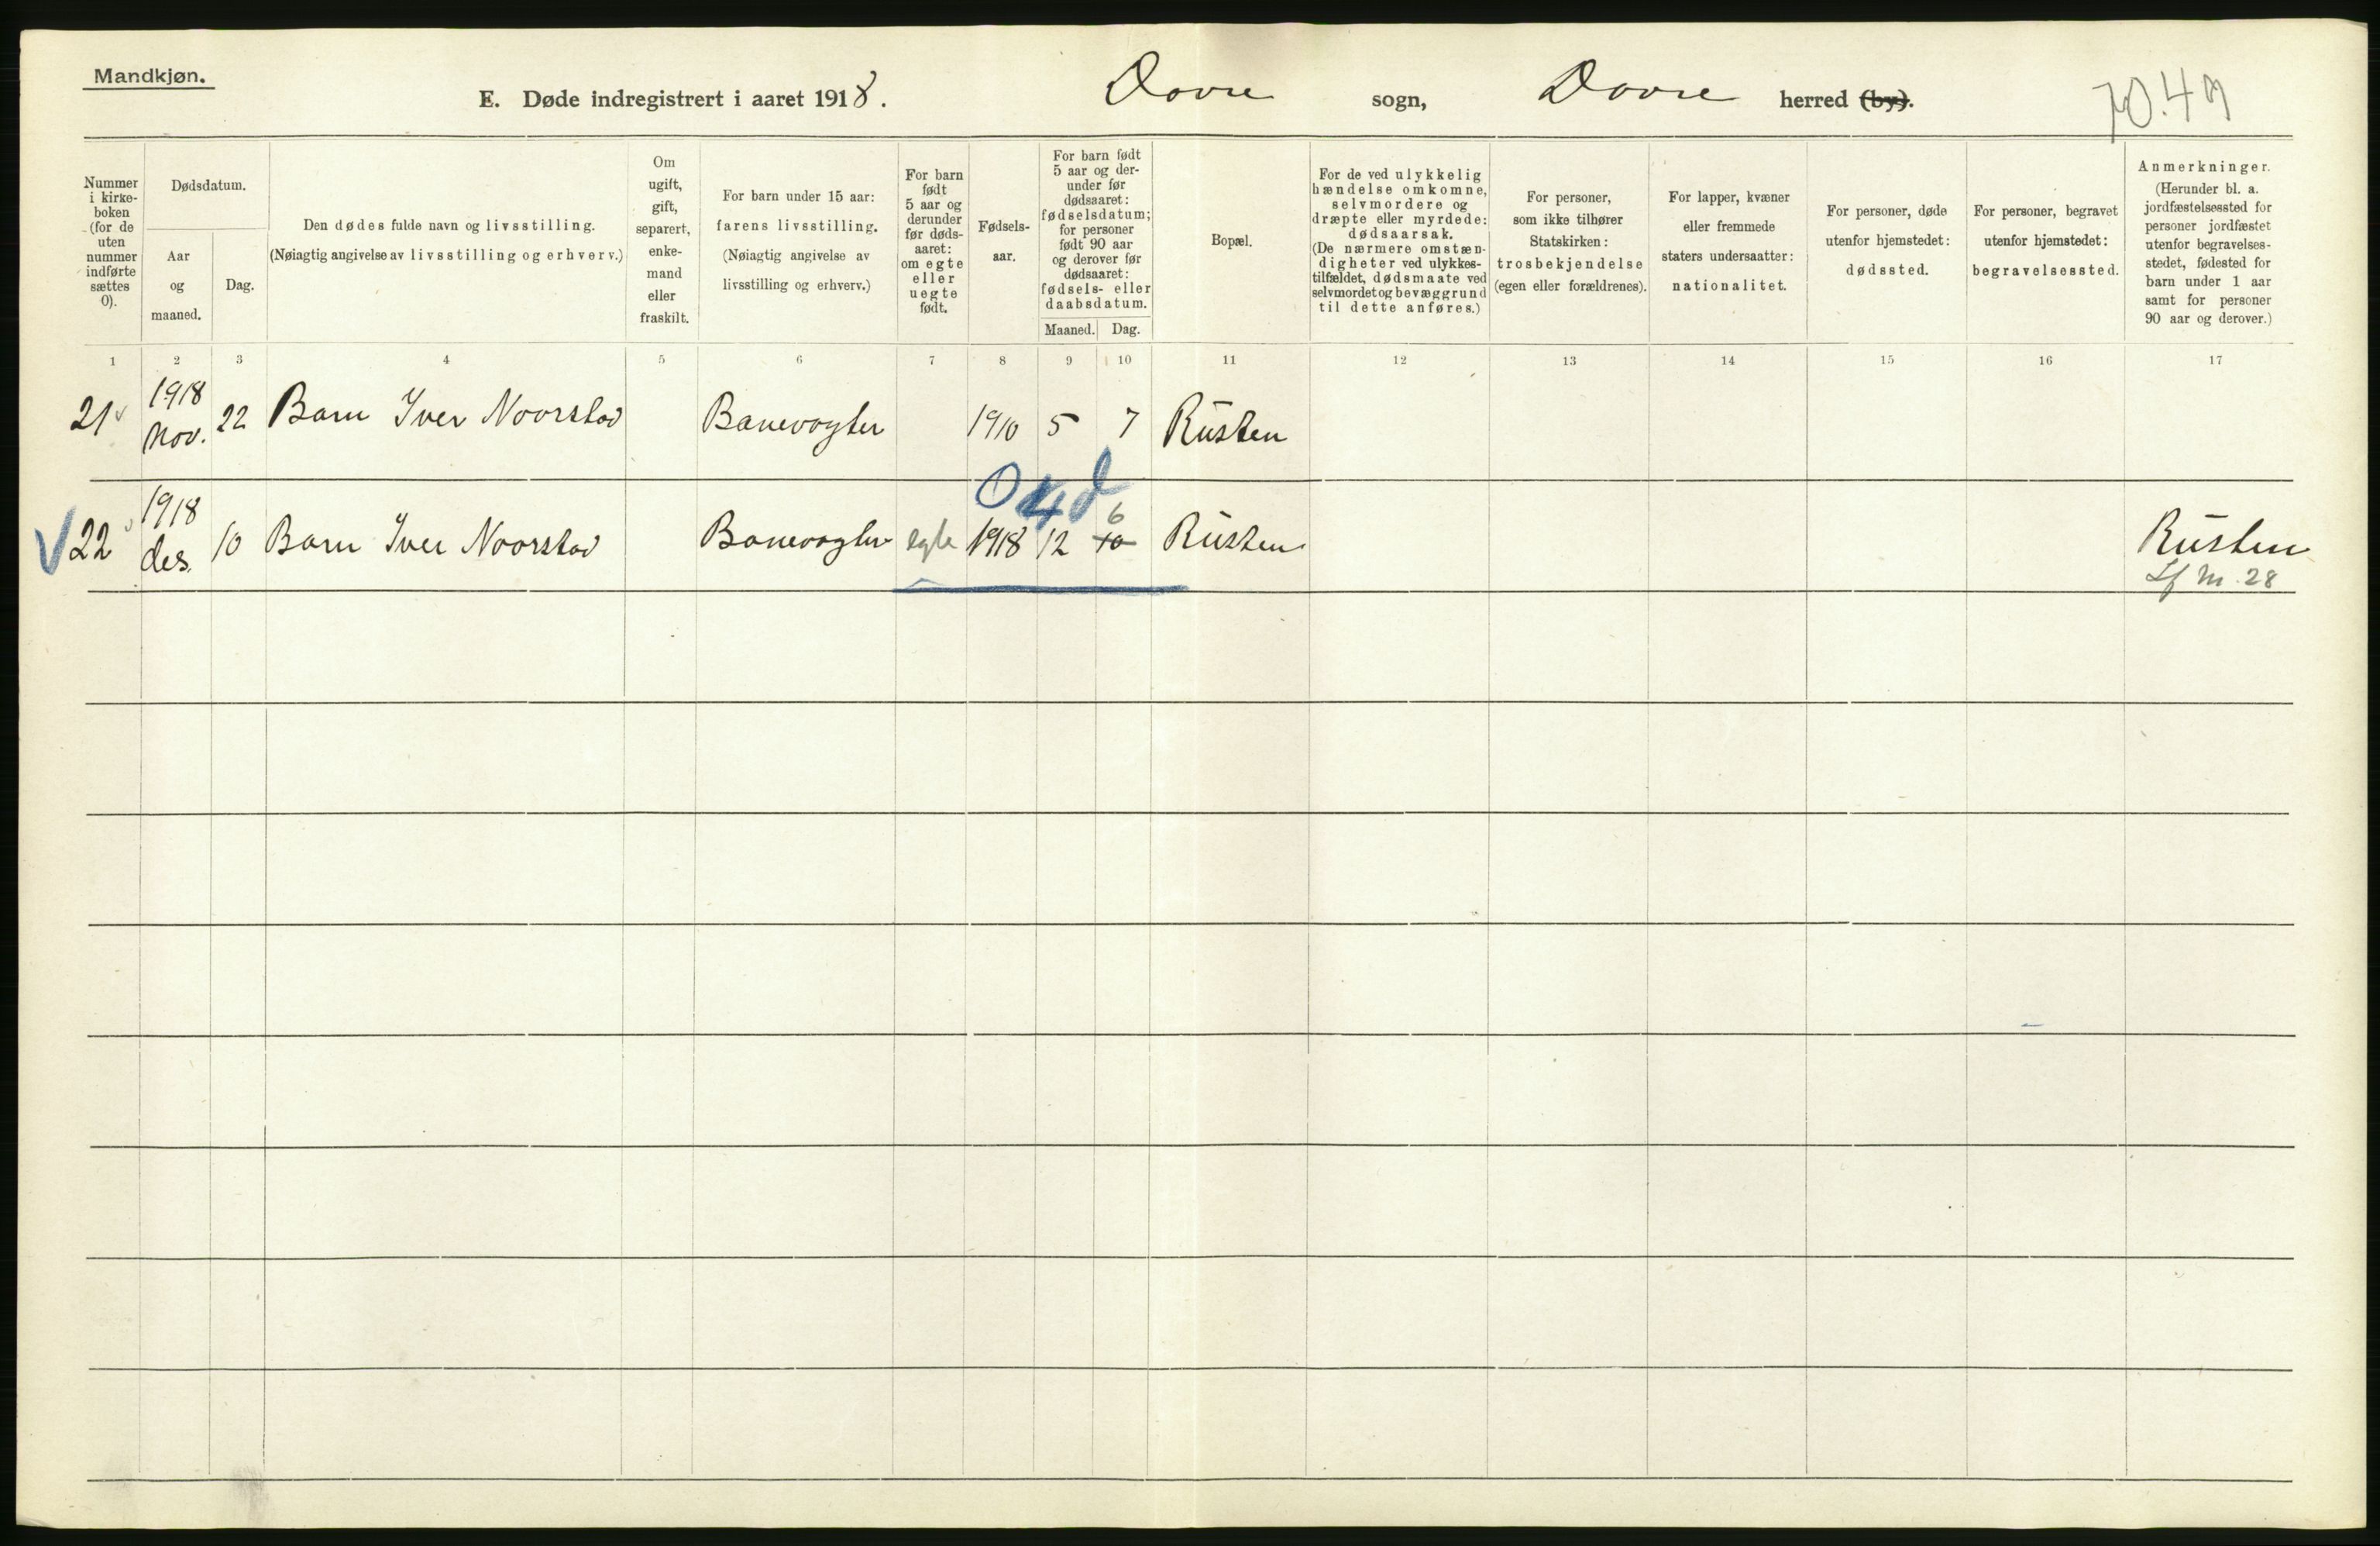 Mandkjøn.
E. Døde indregistrert i aaret 1918. Dovre sogn, Dovre herred (by).
Nummer i kirke-boken (for de uten nummer indførte sættes 0).
Dødsdatum.
Aar og maaned.
Dag.
Den dødes fulde navn og livsstilling.
(Nøiagtig angivelse av livsstilling og erhverv.)
Om ugift, gift, separert, enke-mand eller fraskilt.
For barn under 15 aar:
farens livsstilling.
(Nøiagtig angivelse av
livsstilling og erhverv.)
For barn født 5 aar og derunder før døds-aaret: om egte eller uegte født.
Fødsels-aar.
For barn født 5 aar og der-under før dødsaaret: fødselsdatum; for personer født 90 aar og derover før dødsaaret: fødsels- eller daabsdatum.
Maaned. Dag.
Bopæl.
For de ved ulykkelig hændelse omkomne, selvmordere og dræpte eller myrdede: dødsaarsak. (De nærmere omstæn-digheter ved ulykkes-tilfældet, dødsmaate ved selvmordet og bevæggrund til dette anføres.)
For personer, som ikke tilhører Statskirken: trosbekjendelse (egen eller forældrenes).
For lapper, kvæner eller fremmede staters undersaatter: nationalitet.
For personer, døde utenfor hjemstedet: dødssted.
For personer, begravet utenfor hjemstedet: begravelsessted.
Anmerkninger.
(Herunder bl. a. jordfæstelsessted for personer jordfæstet utenfor begravelses-stedet, fødested for barn under 1 aar samt for personer 90 aar og derover.)
1 2 3 4 5 6 7 8 9 10 11 12 13 14 15 16 17
21 1918 Nov. 22 Barn Iver Noorstad Banevogter 1910 5 7 Rusten
0 4 d
6
22 1918 des. 10 Barn Iver Noorstad Banevogter egte 1918 12 10 Rusten Rusten
Lf M. 28